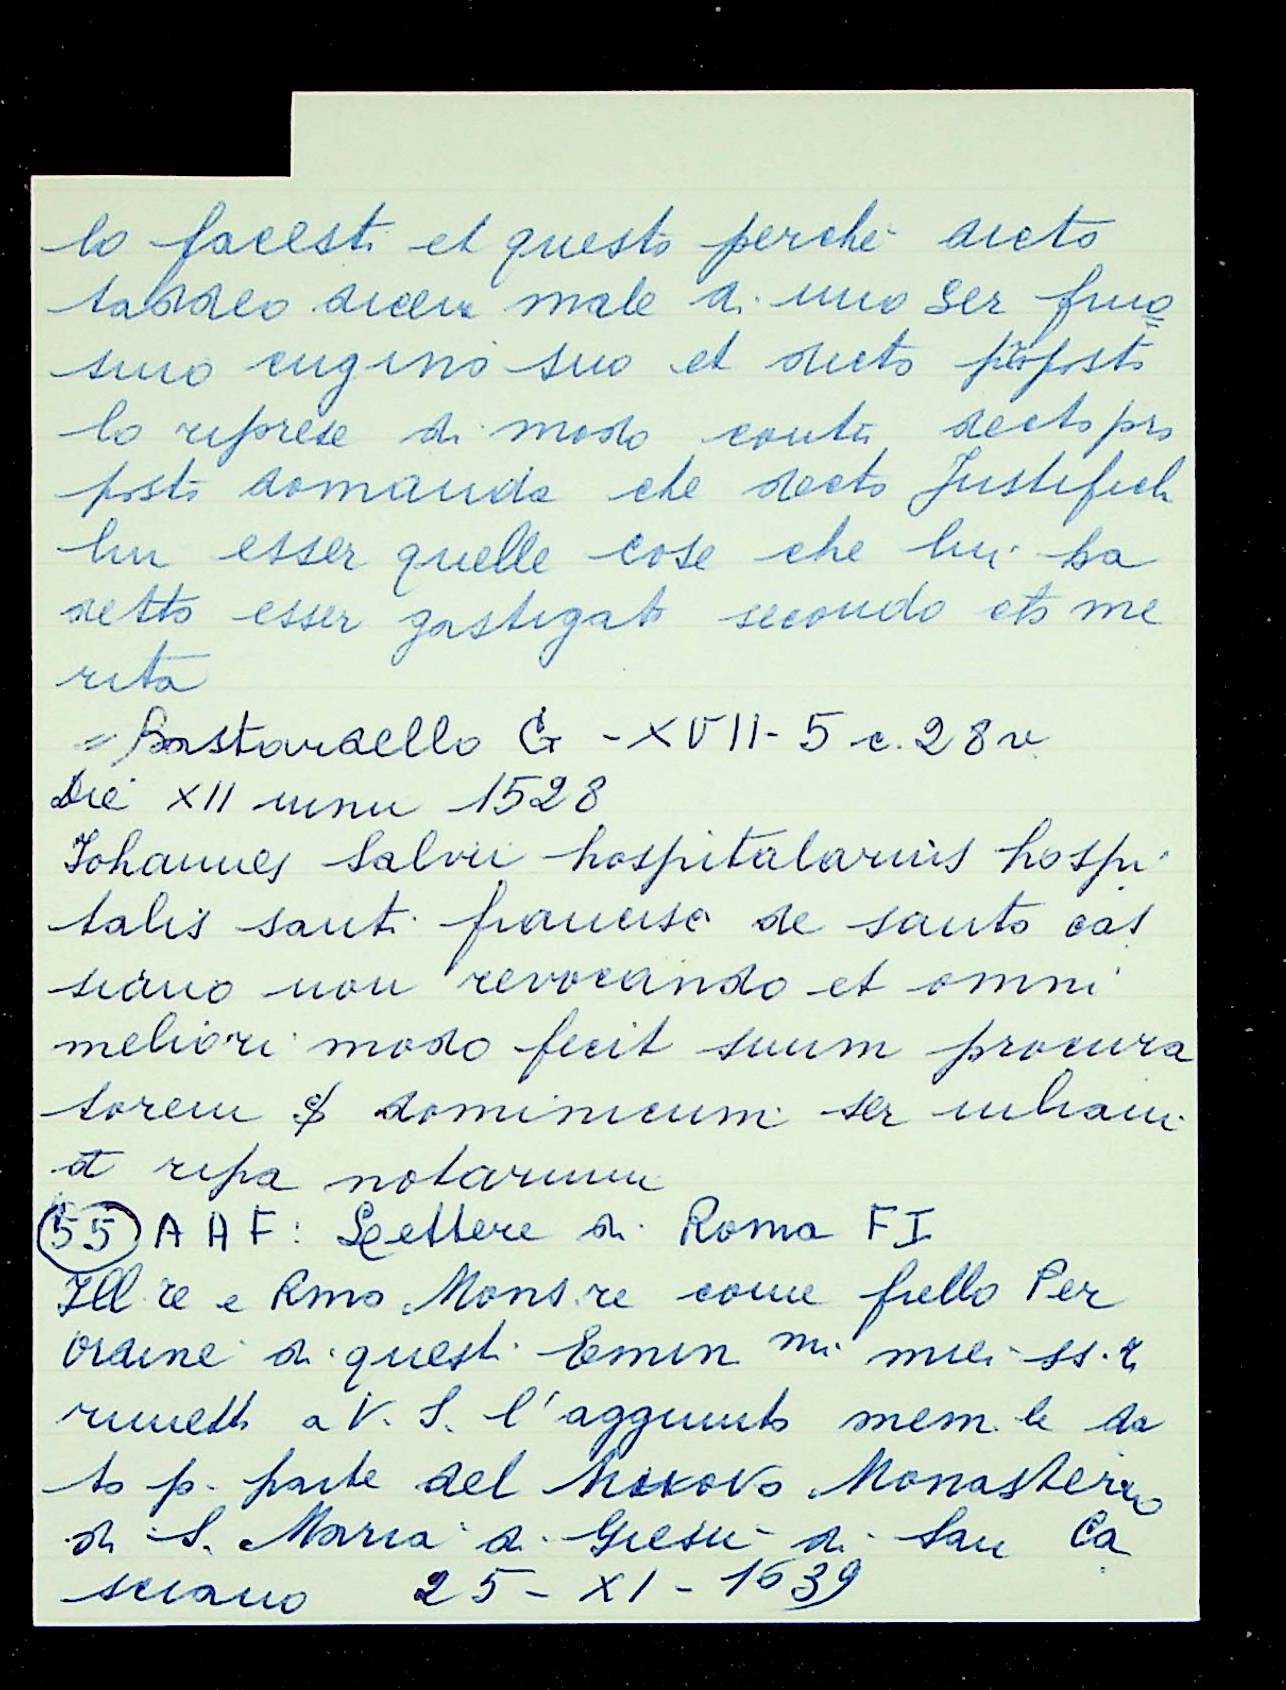 lo facesti et questo perché dicto
taddeo dicea male di uno Ser fruo=
sino cugino suo et dicto proposto
lo riprese di modo contu decto pro
posto domanda che decto Justifich
lui esser quelle cose che lui ha
detto esser gastigato secondo cto me
rita
= Bastardello G - XVII - 5 c. 28 v
Die XII iunii 1528
Johannes Salvii hospitalarius hospi
talis santi francisci de santo cas
siano non revocando et omni
meliori modo fecit suum procura
torem dominicum ser iuliani
a ripa notarium
55 A A F: Lettere di Roma F I
Ill.re e Rmo Mons.re come frello Per
ordine di questi Emin mi miei ss.ri
rimetto a V. S. l'aggiunto mem.le da
to p. parte del Nuovo Monasterio
di S. Maria di Giesù di San Ca
sciano 25 - XI - 1639